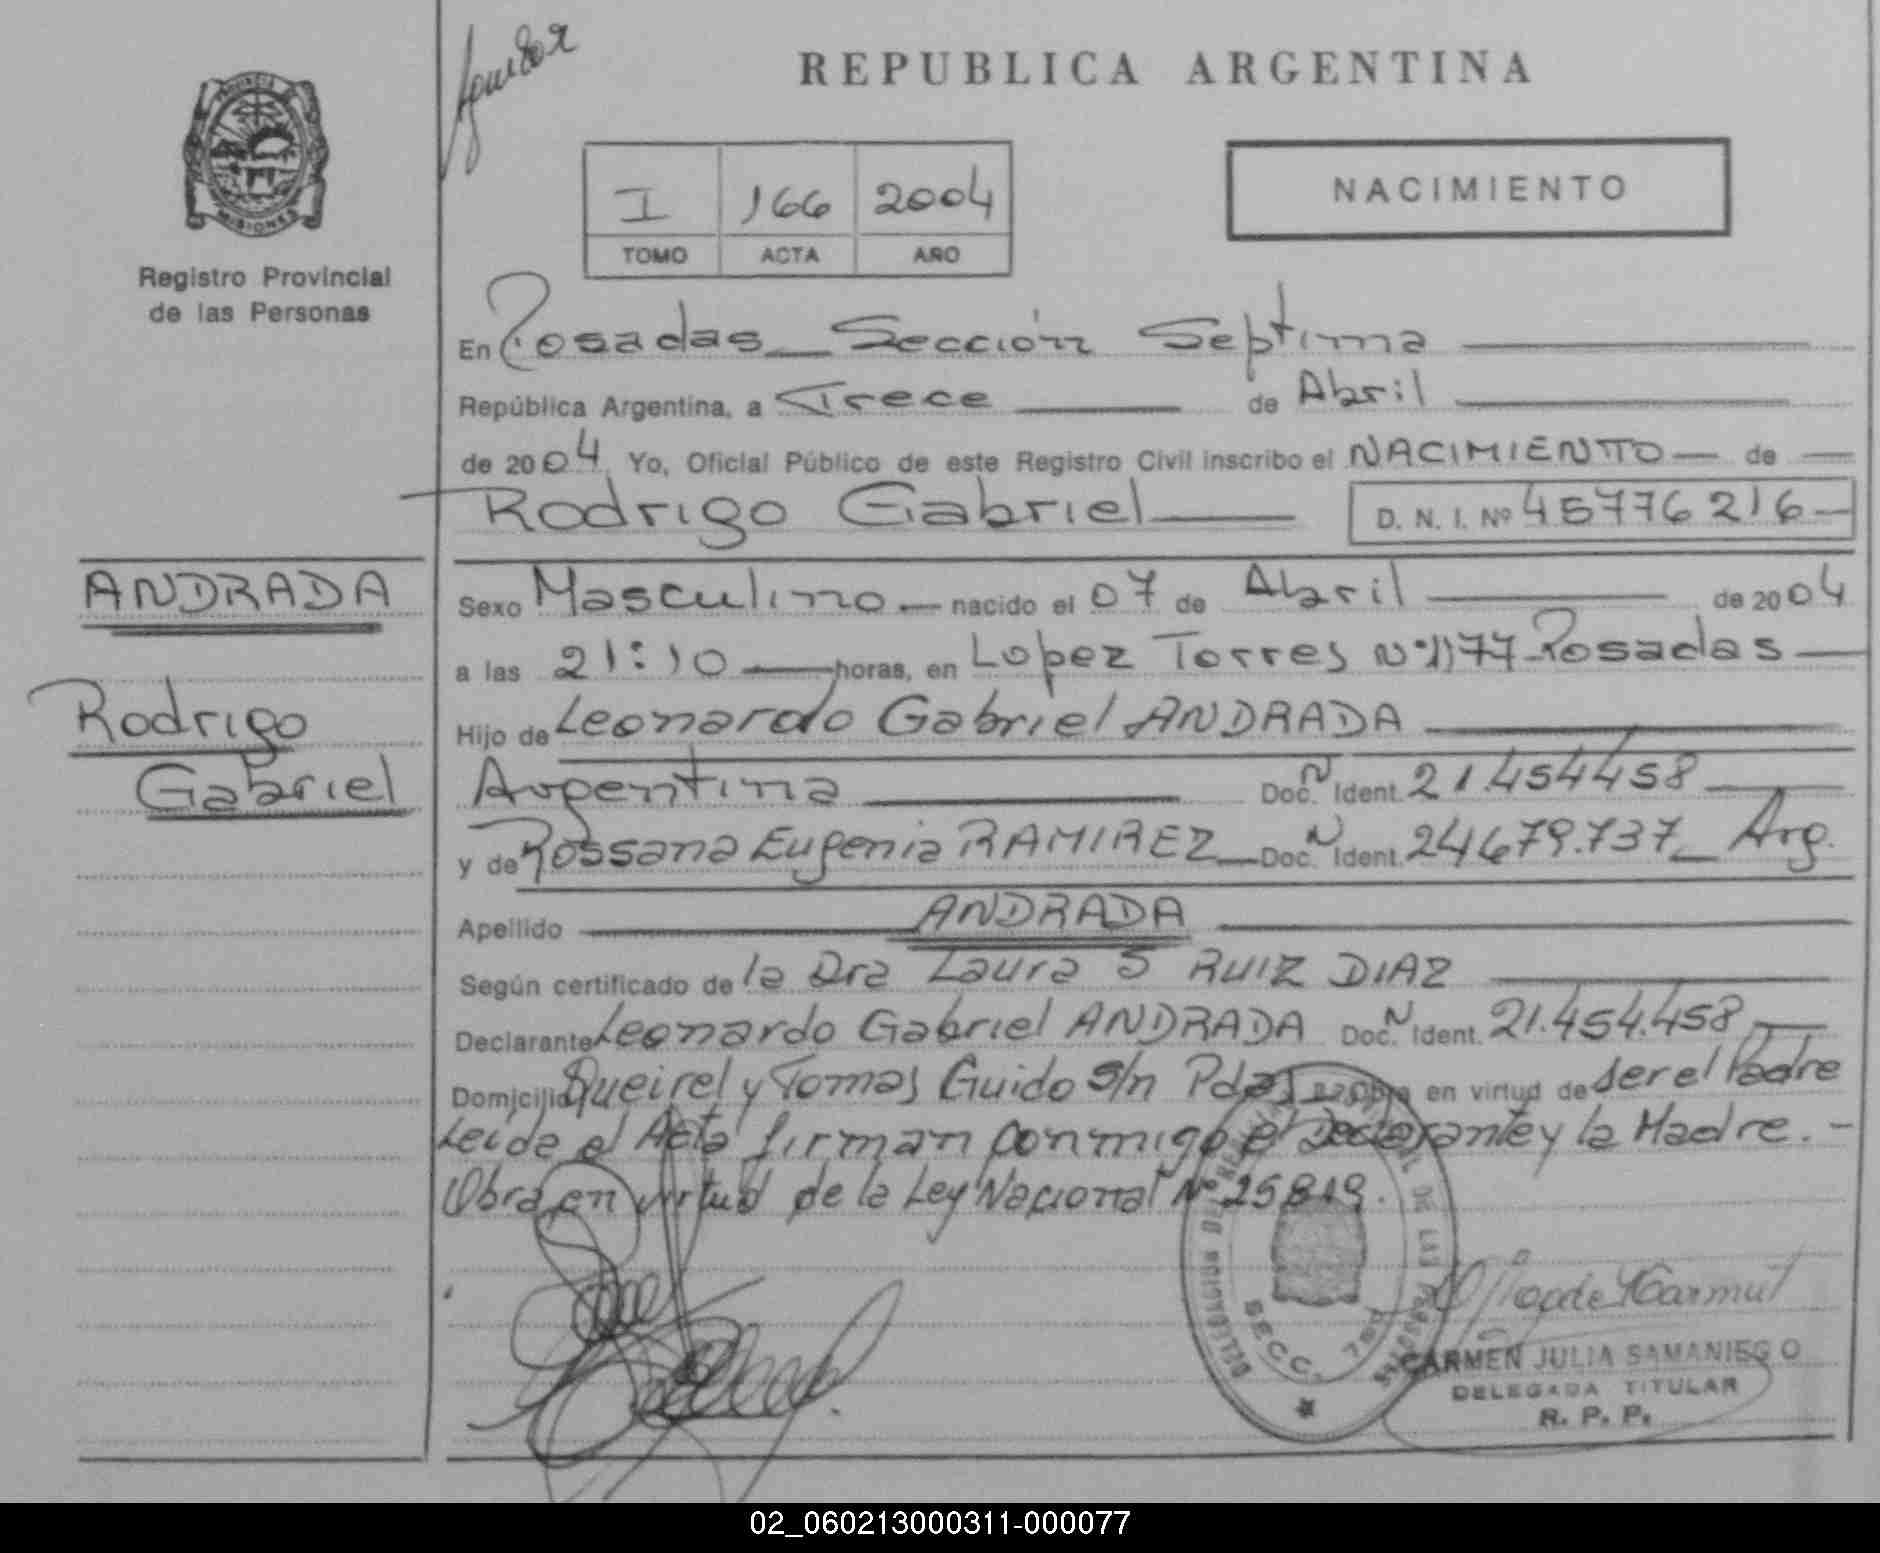 REPUBLICA ARGENTINA
PROVINCIA
MISIONES
Registro Provincial
de las Personas
I 166 2004
TOMO ACTA AÑO
NACIMIENTO
En Posadas Sección Septima
República Argentina, a Trece de Abril
de 2004 Yo, Oficial Público de este Registro Civil inscribo el NACIMIENTO de
Rodrigo Gabriel D. N. I. Nº 45776216
ANDRADA
Rodrigo
Gabriel
Sexo Masculino nacido el 07 de Abril de 2004
a las 21:10 horas, en Lopez Torres Nº 1177 Posadas
Hijo de Leonardo Gabriel ANDRADA
Argentina Doc. N Ident. 21.454458
y de Rossana Eugenia RAMIREZ Doc. N Ident. 24679.737 Arg.
Apellido ANDRADA
Según certificado de la Dra Laura S RUIZ DIAZ
Declarante Leonardo Gabriel ANDRADA Doc. N Ident. 21.454.458
Domicilio Queirel y Tomas Guido s/n Pdas Obra en virtud de ser el Padre
Leida el Acta firman conmigo el Declarante y la Madre.-
Obra en virtud de la Ley Nacional Nº 25819.
DELEGACION DEL REGISTRO PROVINCIAL DE LAS PERSONAS
SECC. 7ma
CARMEN JULIA SAMANIEGO
DELEGADA TITULAR
R. P. P.
02_060213000311-000077